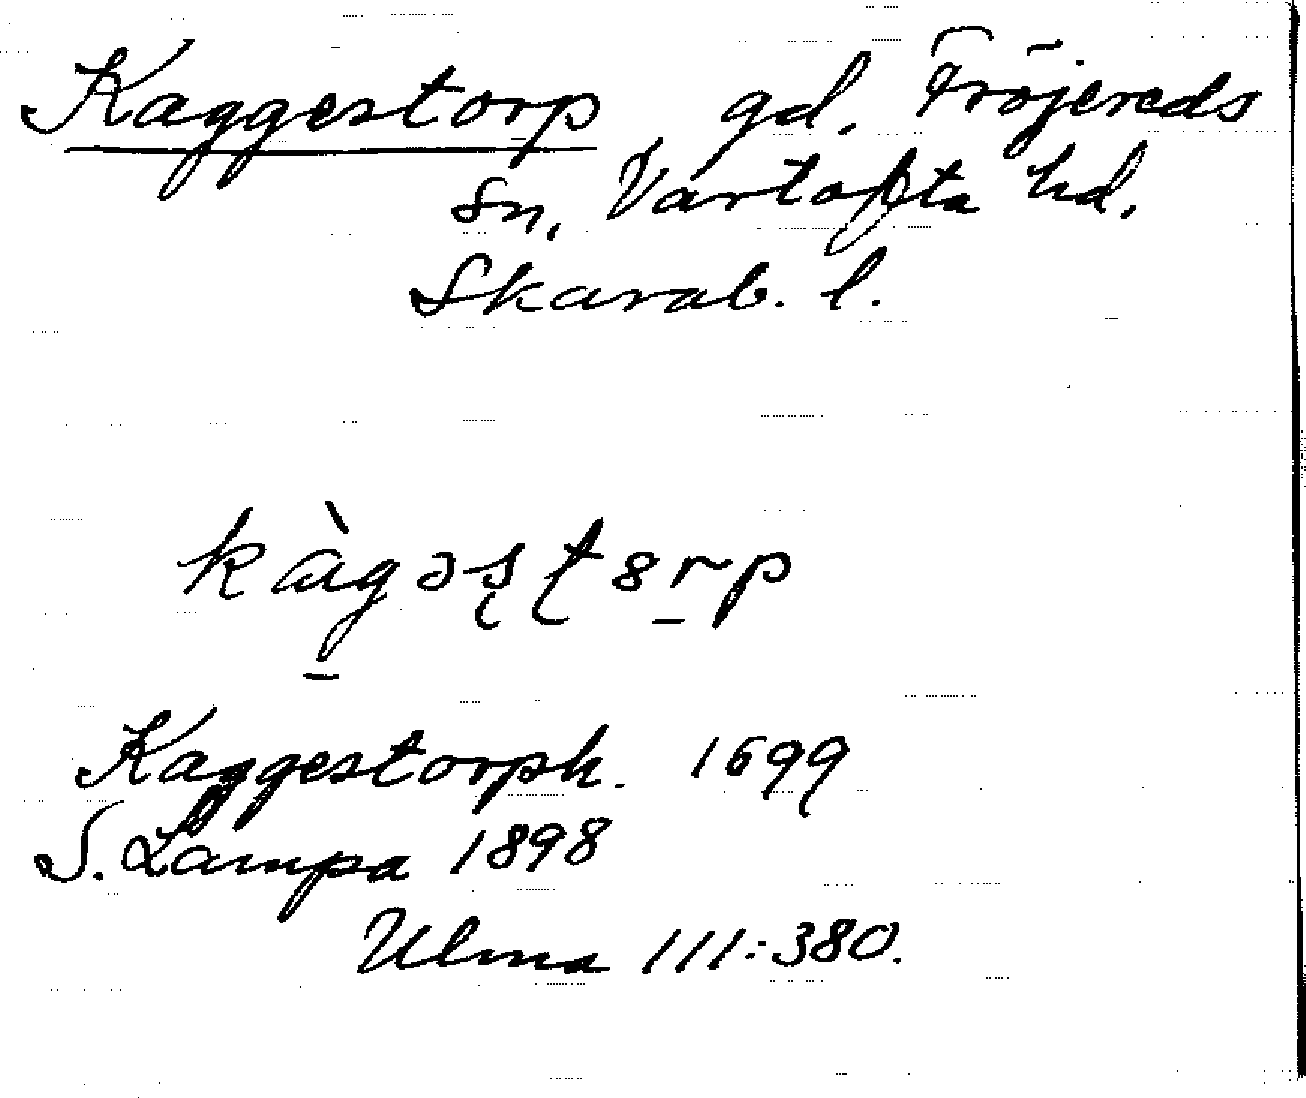 Kaggestorp gd. Fröjereds
sn, Vartofta hd.
Skarab. l.
kàgəsterp
Kaggestorph. 1699
S. Lampa 1898
Ulma 111:380.